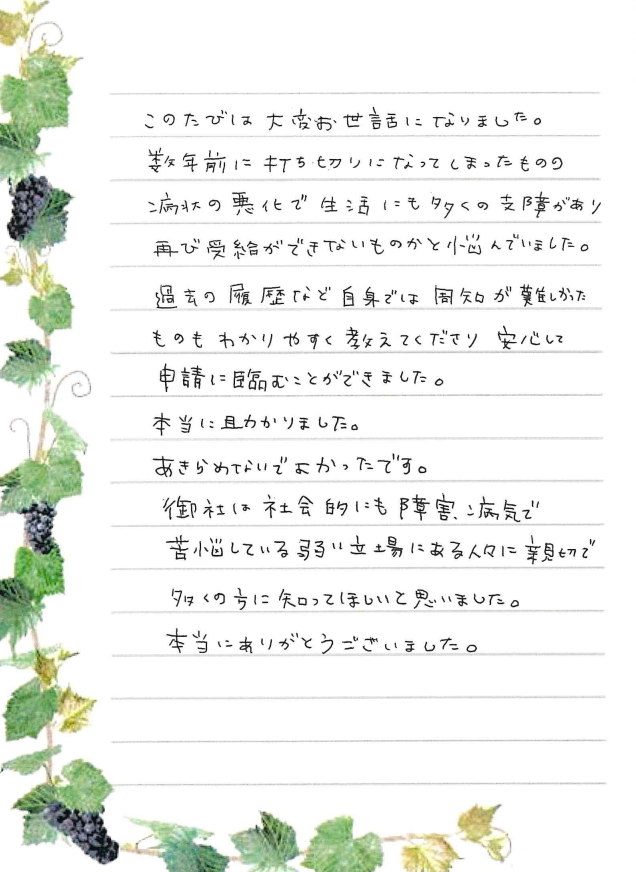 このたびは 大変お世話になりました。
数年前に打ち切りになってしまったものの
病状の悪化で生活にも多くの支障があり
再び受給ができないものかと悩んでいました。
過去の履歴など自身では周知が難しかった
ものもわかりやすく教えてくださり 安心して
申請に臨むことができました。
本当に助かりました。
あきらめないでよかったです。
御社は社会的にも障害、病気で
苦悩している弱い立場にある人々に親切で
多くの方に知ってほしいと思いました。
本当にありがとうございました。